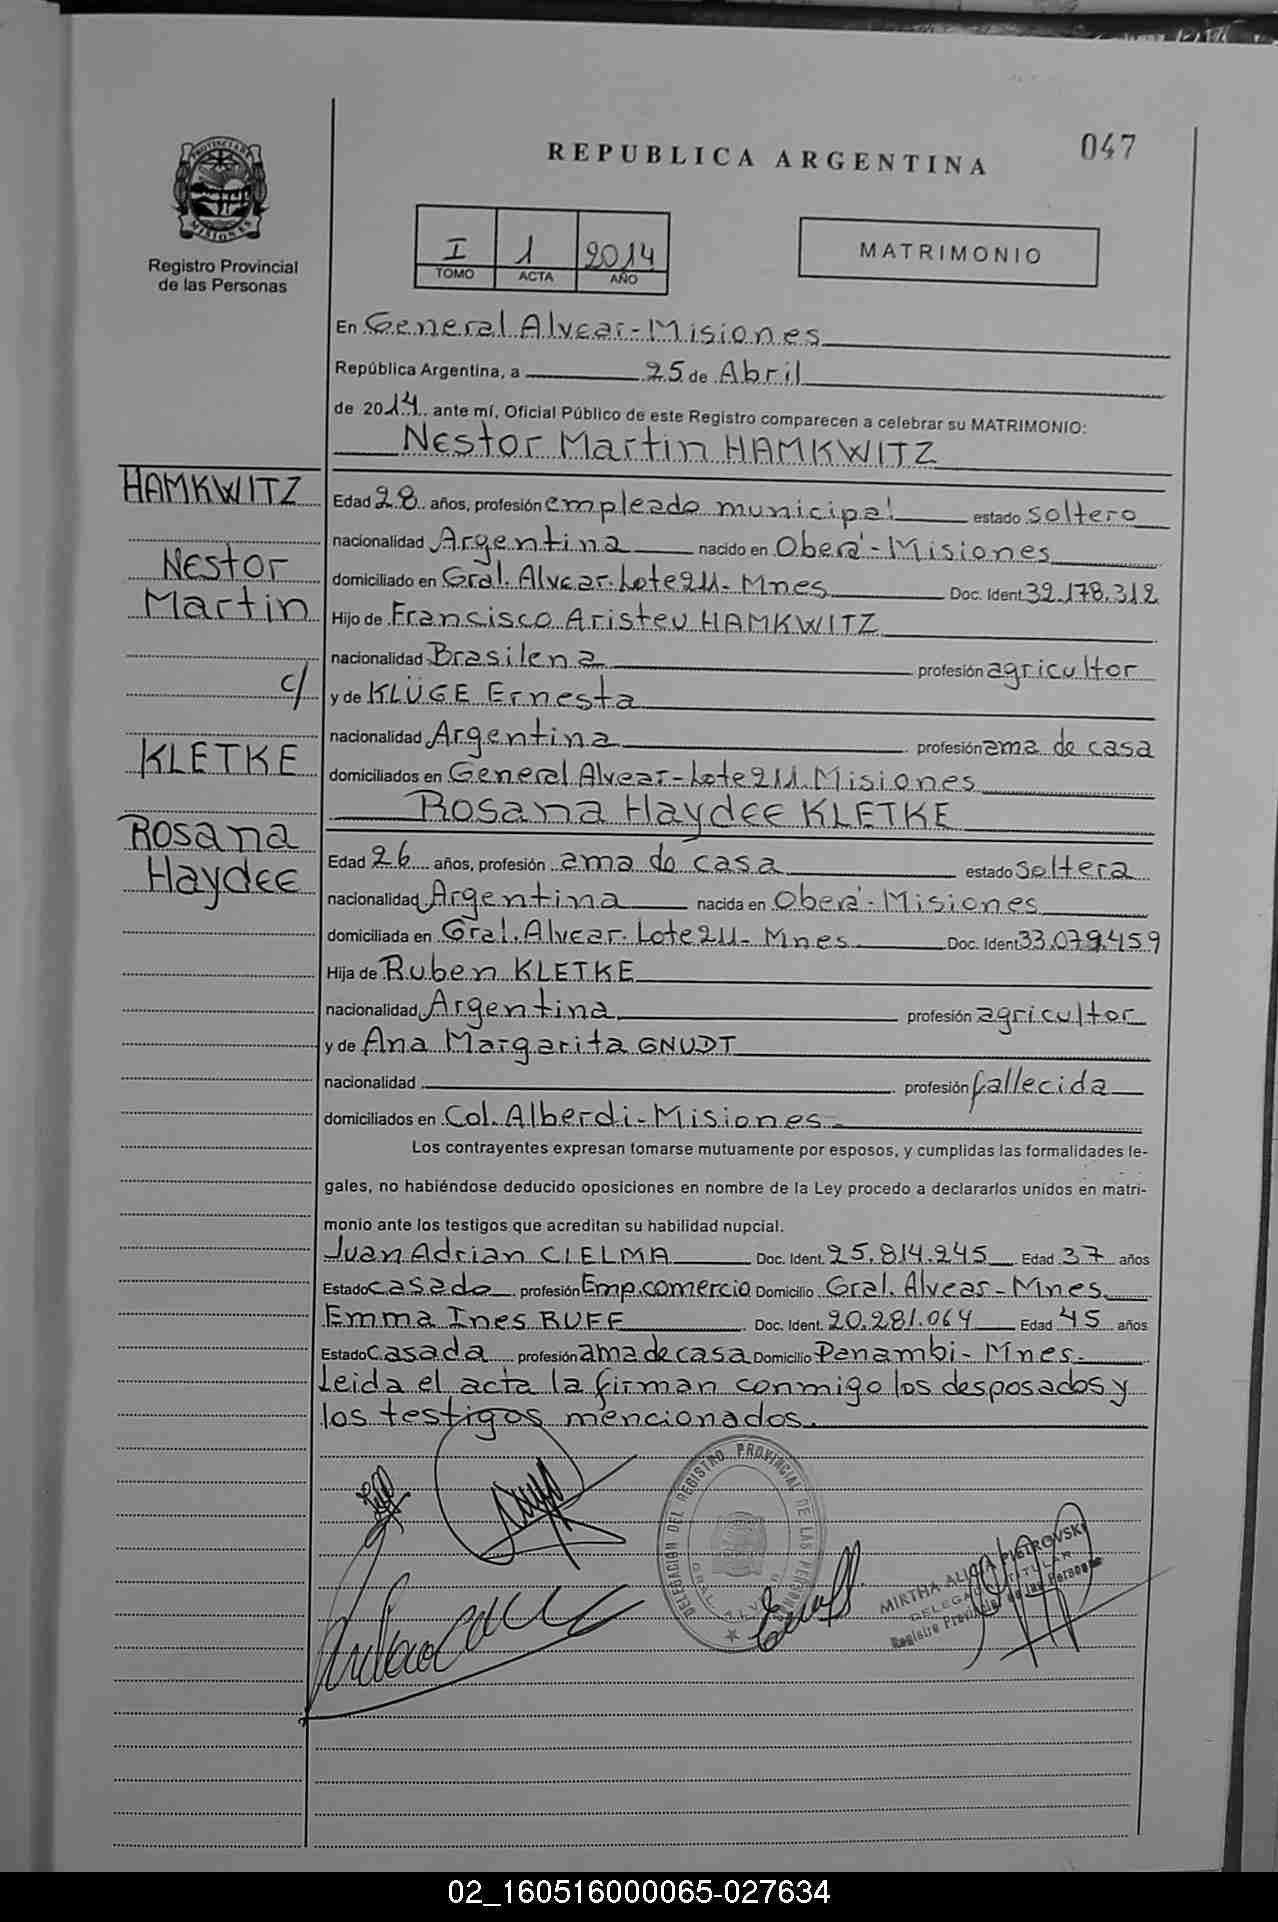 047
REPUBLICA ARGENTINA
PROVINCIA DE MISIONES
Registro Provincial
de las Personas
I 1 2014
TOMO ACTA AÑO
MATRIMONIO
En General Alvear-Misiones
República Argentina, a 25 de Abril
de 2014 ante mí, Oficial Público de este Registro comparecen a celebrar su MATRIMONIO:
Nestor Martin HAMKWITZ
HAMKWITZ
Nestor
Martin
c/
KLETKE
Rosana
Haydee
Edad 28 años, profesión empleado municipal estado soltero
nacionalidad Argentina nacido en Oberá-Misiones
domiciliado en Gral. Alvear. Lote 211- Mnes Doc. Ident 32.178.312
Hijo de Francisco Aristeu HAMKWITZ
nacionalidad Brasilena profesión agricultor
y de KLÜGE Ernesta
nacionalidad Argentina profesión ama de casa
domiciliados en General Alvear-Lote 211. Misiones
Rosana Haydee KLETKE
Edad 26 años, profesión ama de casa estado soltera
nacionalidad Argentina nacida en Oberá-Misiones
domiciliada en Gral. Alvear. Lote 211- Mnes Doc. Ident 33.079.459
Hija de Ruben KLETKE
nacionalidad Argentina profesión agricultor
y de Ana Margarita GNUDT
nacionalidad profesión fallecida
domiciliados en Col. Alberdi-Misiones
Los contrayentes expresan tomarse mutuamente por esposos, y cumplidas las formalidades le-
gales, no habiéndose deducido oposiciones en nombre de la Ley procedo a declararlos unidos en matri-
monio ante los testigos que acreditan su habilidad nupcial.
Juan Adrian CIELMA Doc. Ident. 25.814.245 Edad 37 años
Estado casado profesión Emp. comercio Domicilio Gral. Alvear-Mnes.
Emma Ines RUFF Doc. Ident. 20.281.064 Edad 45 años
Estado casada profesión ama de casa Domicilio Panambi-Mnes.
Leida el acta la firman conmigo los desposados y
los testigos mencionados.
DELEGACIÓN DEL REGISTRO PROVINCIAL DE LAS PERSONAS
GRAL. ALVEAR
MIRTHA ALICIA PIETROVSKI
DELEGADA TITULAR
Registro Provincial de las Personas
02_160516000065-027634